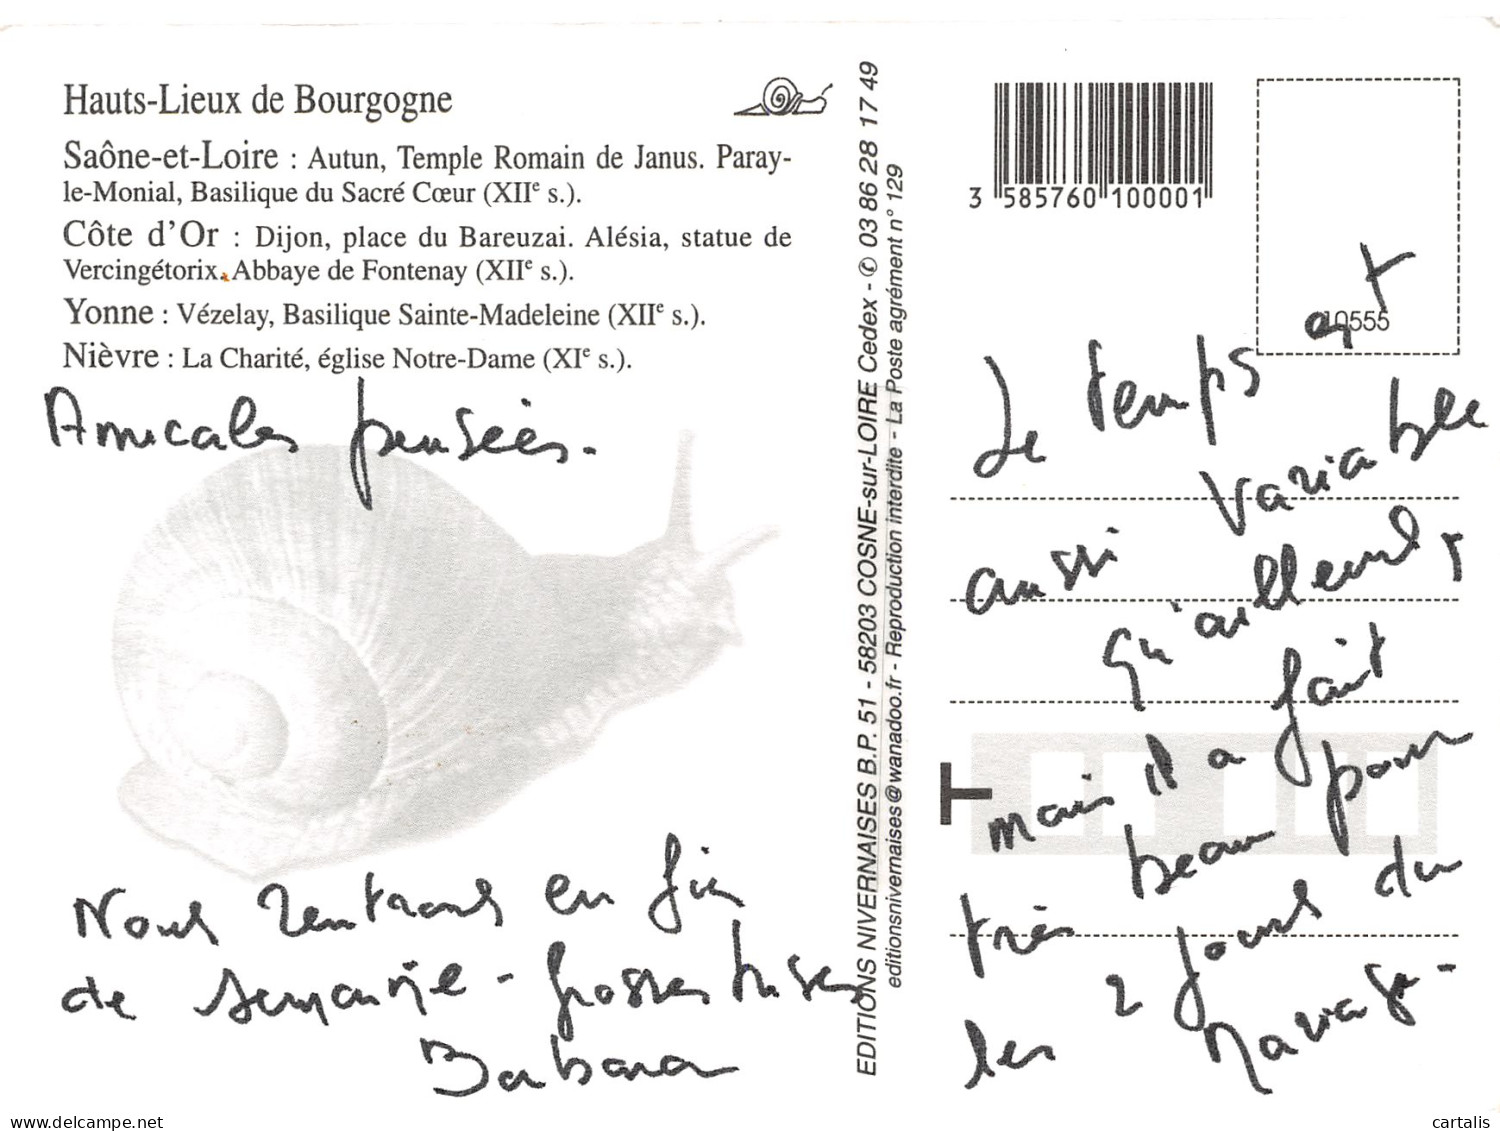 Hauts-Lieux de Bourgogne
Saône-et-Loire : Autun, Temple Romain de Janus. Paray-
le-Monial, Basilique du Sacré Cœur (XIIe s.).
Côte d'Or : Dijon, place du Bareuzai. Alésia, statue de
Vercingétorix. Abbaye de Fontenay (XIIe s.).
Yonne : Vézelay, Basilique Sainte-Madeleine (XIIe s.).
Nièvre : La Charité, église Notre-Dame (XIe s.).
Amicales pensées.
Nous rentrons en fin
de semaine - grosses bises
Barbara
EDITIONS NIVERNAISES B.P. 51 - 58203 COSNE-sur-LOIRE Cedex - © 03 86 28 17 49
editionsnivernaises@wanadoo.fr - Reproduction interdite - La Poste agrément n° 129
3 585760 100001
10555
Le temps est
aussi variable
qu'ailleurs,
mais il a fait
très beau pour
les 2 jours du
mariage -
delcampe.net
cartalis